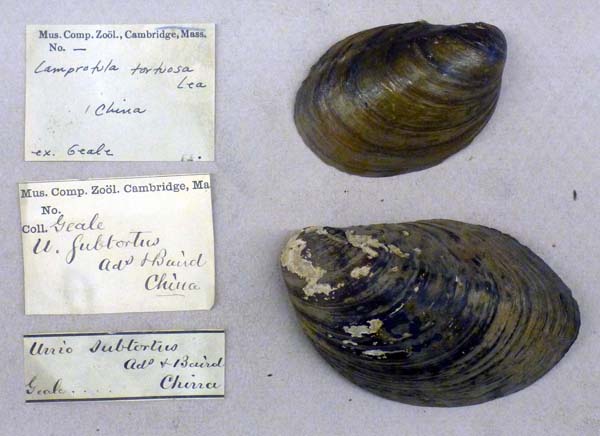 Mus. Comp. Zoöl., Cambridge, Mass.
No. —
Lamprotula tortuosa
Lea
China
ex. Geale
Mus. Comp. Zoöl. Cambridge, Ma
No.
Coll. Geale
U. subtortus
Ads & Baird
China
Unio subtortus
Ads & Baird
Geale . . . . China